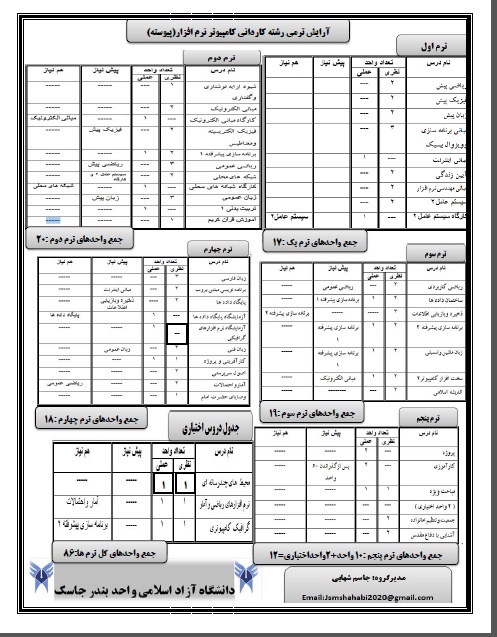 آرایش ترمی رشته کاردانی کامپیوتر نرم افزار(پیوسته)
ترم اول
نام درس تعداد واحد پیش نیاز هم نیاز
نظری عملی
ریاضی پیش ۲ --- -----
فیزیک پیش ۲ --- -----
زبان پیش ۲ --- -----
مبانی برنامه سازی ۳ --- -----
ویژوال بیسیک
مبانی اینترنت --- ۱ -----
آیین زندگی ۲ --- -----
مبانی مهندسی نرم افزار ۲ --- -----
سیستم عامل ۲ ۲ --- -----
کارگاه سیستم عامل ۲ --- ۱ ----- سیستم عامل۲
جمع واحدهای ترم یک: ۱۷
ترم دوم
نام درس تعداد واحد پیش نیاز هم نیاز
نظری عملی
شیوه ارایه نوشتاری ۱ --- ----- -----
وگفتاری
مبانی الکترونیک ۲ --- ----- -----
کارگاه مبانی الکترونیک --- ۱ ----- مبانی الکترونیک
فیزیک الکتریسته ۲ --- فیزیک پیش -----
ومغناطیس
برنامه سازی پیشرفته ۱ ۲ ۱ ----- -----
ریاضی عمومی ۳ --- ریاضی پیش -----
شبکه های محلی ۲ ---
کارگاه شبکه های محلی --- ۱ ----- شبکه های محلی
زبان عمومی ۳ --- زبان پیش -----
تربیت بدنی ۱ --- ۱ ----- -----
آموزش قرآن کریم ۱ --- -----
جمع واحدهای ترم دوم: ۲۰
ترم سوم
نام درس تعداد واحد پیش نیاز هم نیاز
نظری عملی
ریاضی کاربردی ۲ --- ریاضی عمومی -----
ساختمان داده ها ۲ ۱ برنامه سازی پیشرفته ۱ -----
ذخیره وبازیابی اطلاعات ۳ --- ----- برنامه سازی پیشرفته ۲
برنامه سازی پیشرفته ۲ ۲ ۱ برنامه سازی پیشرفته ۱ -----
زبان ماشین واسمبلی ۲ ۱ برنامه سازی پیشرفته ۱ -----
سخت افزار کامپیوتر۲ ۲ ۱ مبانی الکترونیک -----
اندیشه اسلامی ۲ --- -----
جمع واحدهای ترم سوم: ۱۹
ترم چهارم
نام درس تعداد واحد پیش نیاز هم نیاز
نظری عملی
زبان فارسی ۳ --- ----- -----
برنامه نویسی مبتنی بروب ۲ مبانی اینترنت -----
پایگاه داده ها ۲ --- ذخیره وبازیابی اطلاعات -----
آزمایشگاه پایگاه داده ها --- ۱ ----- پایگاه داده ها
آزمایشگاه نرم افزارهای --- ۱ ----- -----
گرافیکی
زبان فنی ۲ --- زبان عمومی -----
کارآفرینی و پروژه ۱ ۱ ---- -----
اصول سرپرستی ۲ --- ----- -----
آمارو احتمالات ۲ --- ----- ریاضی عمومی
وصایای حضرت امام ۱ --- ----- -----
جمع واحدهای ترم چهارم: ۱۸
ترم پنجم
نام درس تعداد واحد پیش نیاز هم نیاز
نظری عملی
پروژه --- ۲ ----- -----
کارآموزی --- ۲ پس ازگذراندن ۶۰ واحد -----
مباحث ویژه ۱ ۱ ----- -----
(۲ واحد اختیاری)
جمعیت وتنظیم خانواده ۲ --- ----- -----
آشنایی با دفاع مقدس ۲ --- ----- -----
جمع واحدهای ترم پنجم: ۱۰ واحد+۲واحداختیاری=۱۲
جدول دروس اختیاری
نام درس تعداد واحد پیش نیاز هم نیاز
نظری عملی
محیط های چندرسانه ای ۱ ۱ ----- -----
نرم افزارهای ریاضی وآمار ۱ ۱ ----- آمار واحتمالات
گرافیک کامپیوتری ۱ ۱ ----- برنامه سازی پیشرفته ۲
جمع واحدهای کل ترم ها:۸۶
دانشگاه آزاد اسلامی واحد بندر جاسک
مدیرگروه: جاسم شهابی
Email:Jsmshahabi2020@gmail.com